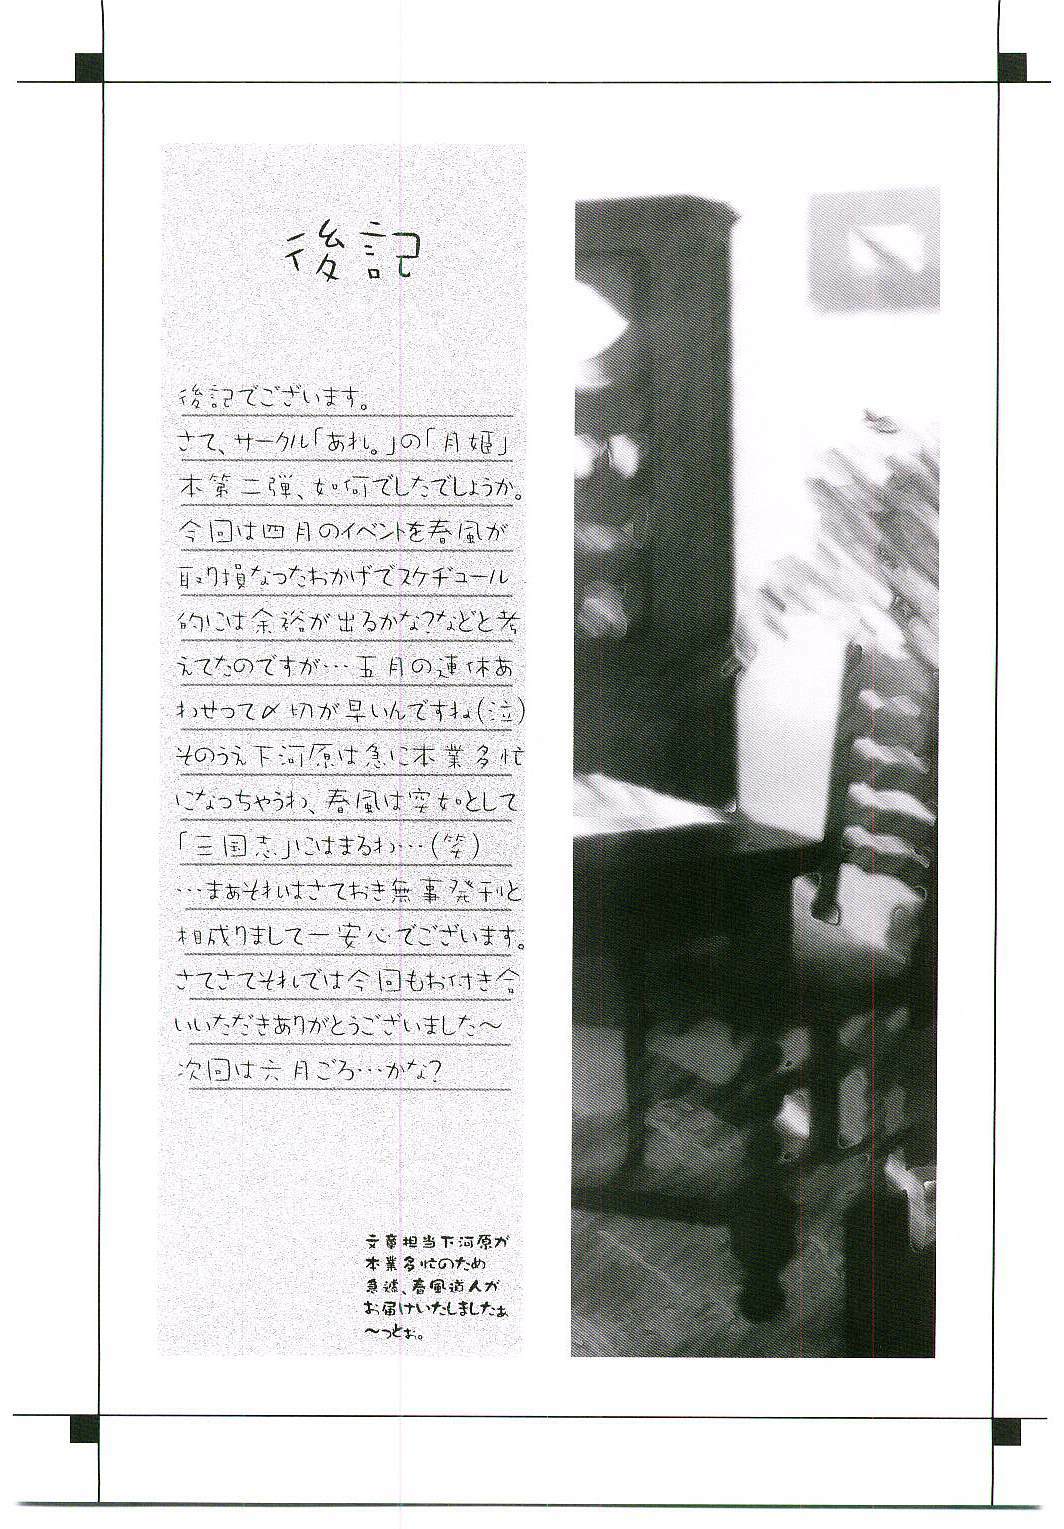 後記
後記でございます。
さて、サークル「あれ。」の「月姫」
本第二弾、如何でしたでしょうか。
今回は四月のイベントを春風が
取り損なったおかげでスケヂュール
的には余裕が出るかな?などと考
えてたのですが…五月の連休あ
わせって〆切が早いんですね(泣)
そのうえ下河原は急に本業多忙
になっちゃうわ、春風は突如として
「三国志」にはまるわ…(笑)
…まぁそれはさておき無事発刊と
相成りまして一安心でございます。
さてさてそれでは今回もお付き合
いいただきありがとうございました〜
次回は六月ごろ…かな?
文章担当下河原が
本業多忙のため
急遽、春風道人が
お届けいたしましたぁ
〜っとぉ。